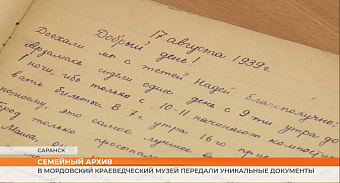 17 августа 1939г.
Добрый день!
Доехали мы с тетей Надей благополучно:
Ардатове сидели один день с 9ти утра до
ночи, ибо только с 10-11 начинают компостиро-
вать билеты. В 7ч. утра 16го при
поэтому, это самое лучшее в
только простояла
Маша, в
САРАНСК
СЕМЕЙНЫЙ АРХИВ
В МОРДОВСКИЙ КРАЕВЕДЧЕСКИЙ МУЗЕЙ ПЕРЕДАЛИ УНИКАЛЬНЫЕ ДОКУМЕНТЫ